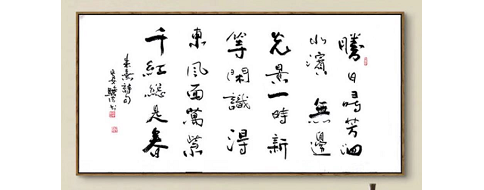 勝日尋芳泗
水濱無邊
光景一時新
等閑識得
東風面萬紫
千紅総是春
朱熹詩句